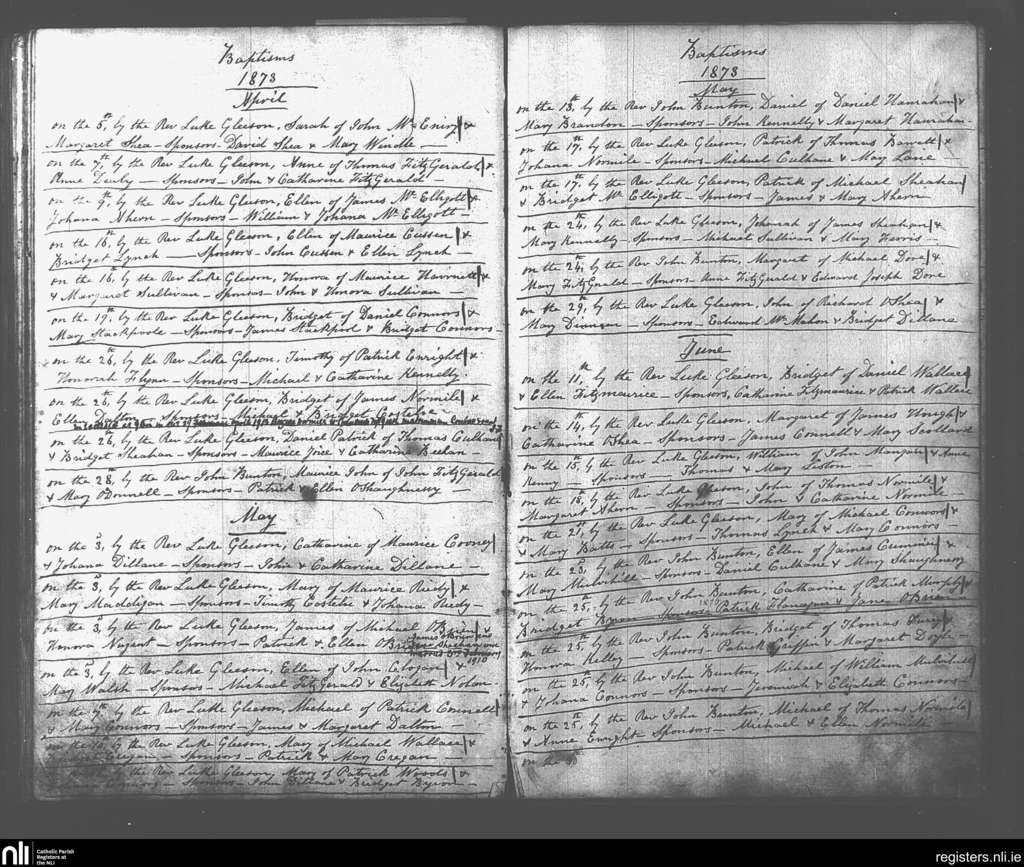 Baptisms
1873
April
on the 5th, by the Rev Luke Gleeson, Sarah of John Mc Eniry &
Margaret Shea - Sponsors - David Shea & Mary Windle -
on the 7th, by the Rev Luke Gleeson, Anne of Thomas FitzGerald &
Anne Danby - Sponsors - John & Catharine FitzGerald
on the 9th, by the Rev Luke Gleeson, Ellen of James Mc Elligott &
Johana Ahern - Sponsors - William & Johana Mc Elligott -
on the 16th, by the Rev Luke Gleeson, Ellen of Maurice Cussen &
Bridget Lynch - Sponsors - John Cussen & Ellen Lynch -
on the 16th, by the Rev Luke Gleeson, Honora of Maurice Harnett &
& Margaret Sullivan - Sponsors - John & Honora Sullivan -
on the 19th, by the Rev Luke Gleeson, Bridget of Daniel Connors &
Mary Stackpoole - Sponsors - James Stackpool & Bridget Connors
on the 26th, by the Rev Luke Gleeson, Timothy of Patrick Enright &
Honorah Flynn - Sponsors - Michael & Catharine Kennelly
on the 26th, by the Rev Luke Gleeson, Bridget of James Normile &
Ellen Dalton - Sponsors - Michael & Bridget Costelloe
on the 26th, by the Rev Luke Gleeson, Daniel Patrick of Thomas Culhane
& Bridget Sheahan - Sponsors - Maurice Joice & Catharine Beehan -
on the 28th, by the Rev John Bunton, Maurice John of John FitzGerald
& Mary O'Donnell - Sponsors - Patrick & Ellen O'Shaughnessy -
May
on the 3rd, by the Rev Luke Gleeson, Catharine of Maurice Cooney
& Johana Dillane - Sponsors - John & Catharine Dillane -
on the 3rd, by the Rev Luke Gleeson, Mary of Maurice Reidy &
Mary Maddigan - Sponsors - Timothy Costelloe & Johana Reidy -
on the 3rd, by the Rev Luke Gleeson, James of Michael O'Brien &
Honora Nugent - Sponsors - Patrick & Ellen O'Brien
James O'Brien
1910
on the 3rd, by the Rev Luke Gleeson, Ellen of John Clogan &
May Walsh - Sponsors - Michael FitzGerald & Elizabeth Nolan -
on the 7th, by the Rev Luke Gleeson, Michael of Patrick Connell
& Mary Connors - Sponsors - James & Margaret Dalton -
by the Rev Luke Gleeson, Mary of Michael Wallace &
Cregan - Sponsors - Patrick & Mary Cregan -
by the Rev Luke Gleeson, Mary of Patrick Woods &
Sponsors - John Dillane & Bridget Byron -
Baptisms
1873
May
on the 13th, by the Rev John Bunton, Daniel of Daniel Hanrahan &
Mary Brandon - Sponsors - John Kennelly & Margaret Hanrahan -
on the 17th, by the Rev Luke Gleeson, Patrick of Thomas Barrett &
Johana Normile - Sponsors - Michael Culhane & May Lane
on the 17th, by the Rev Luke Gleeson, Patrick of Michael Sheahan
& Bridget Mc Elligott - Sponsors - James & Mary Ahern
on the 24th, by the Rev Luke Gleeson, of James Sheahan &
Mary Kennelly - Sponsors - Michael Sullivan & Mary Harris -
on the 24th, by the Rev John Bunton, Margaret of Michael Dore &
Mary FitzGerald - Sponsors - Anne FitzGerald & Edward Joseph Dore
on the 29th, by the Rev Luke Gleeson, John of Richard O'Shea &
May - Sponsors - Edward Mc Mahon & Bridget Dillane
June
on the 11th, by the Rev Luke Gleeson, Bridget of Daniel Wallace
& Ellen Fitzmaurice - Sponsors, Catharine Fitzmaurice & Patrick Wallace
on the 14th, by the Rev Luke Gleeson, Margaret of James Hough &
Catharine O'Shea - Sponsors - James Connell & May Scollard
on the 15th, by the Rev Luke Gleeson, William of John Mangan & Anne
Kenny - Sponsors - Thomas & Mary Liston -
on the 18th, by the Rev Luke Gleeson, John of Thomas Normile &
Margaret Ahern - Sponsors - John & Catharine Normile -
on the 21st, by the Rev Luke Gleeson, May of Michael Connors &
& Mary Batts - Sponsors - Thomas Lynch & May Connors -
on the 23rd, by the Rev John Bunton, Ellen of James Cummins &
Mary Mulvihill - Sponsors - Daniel Culhane & Mary Shaughnessy
on the 25th, by the Rev John Bunton, Catharine of Patrick Murphy &
Bridget Byron - Sponsors - Patrick Flanagan & Jane O'Brien
on the 25th, by the Rev John Bunton, Bridget of Thomas &
Honora Kelly - Sponsors - Patrick Griffin & Margaret Doyle -
on the 25th, by the Rev John Bunton, Michael of William Mulvihill
& Johana Connors - Sponsors - Jeremiah & Elizabeth Connors -
on the 25th, by the Rev John Bunton, Michael of Thomas Normile
& Anne Enright Sponsors - Michael & Ellen Normile -
on the 30
nli
Catholic Parish
Registers at
the NLI
registers.nli.ie